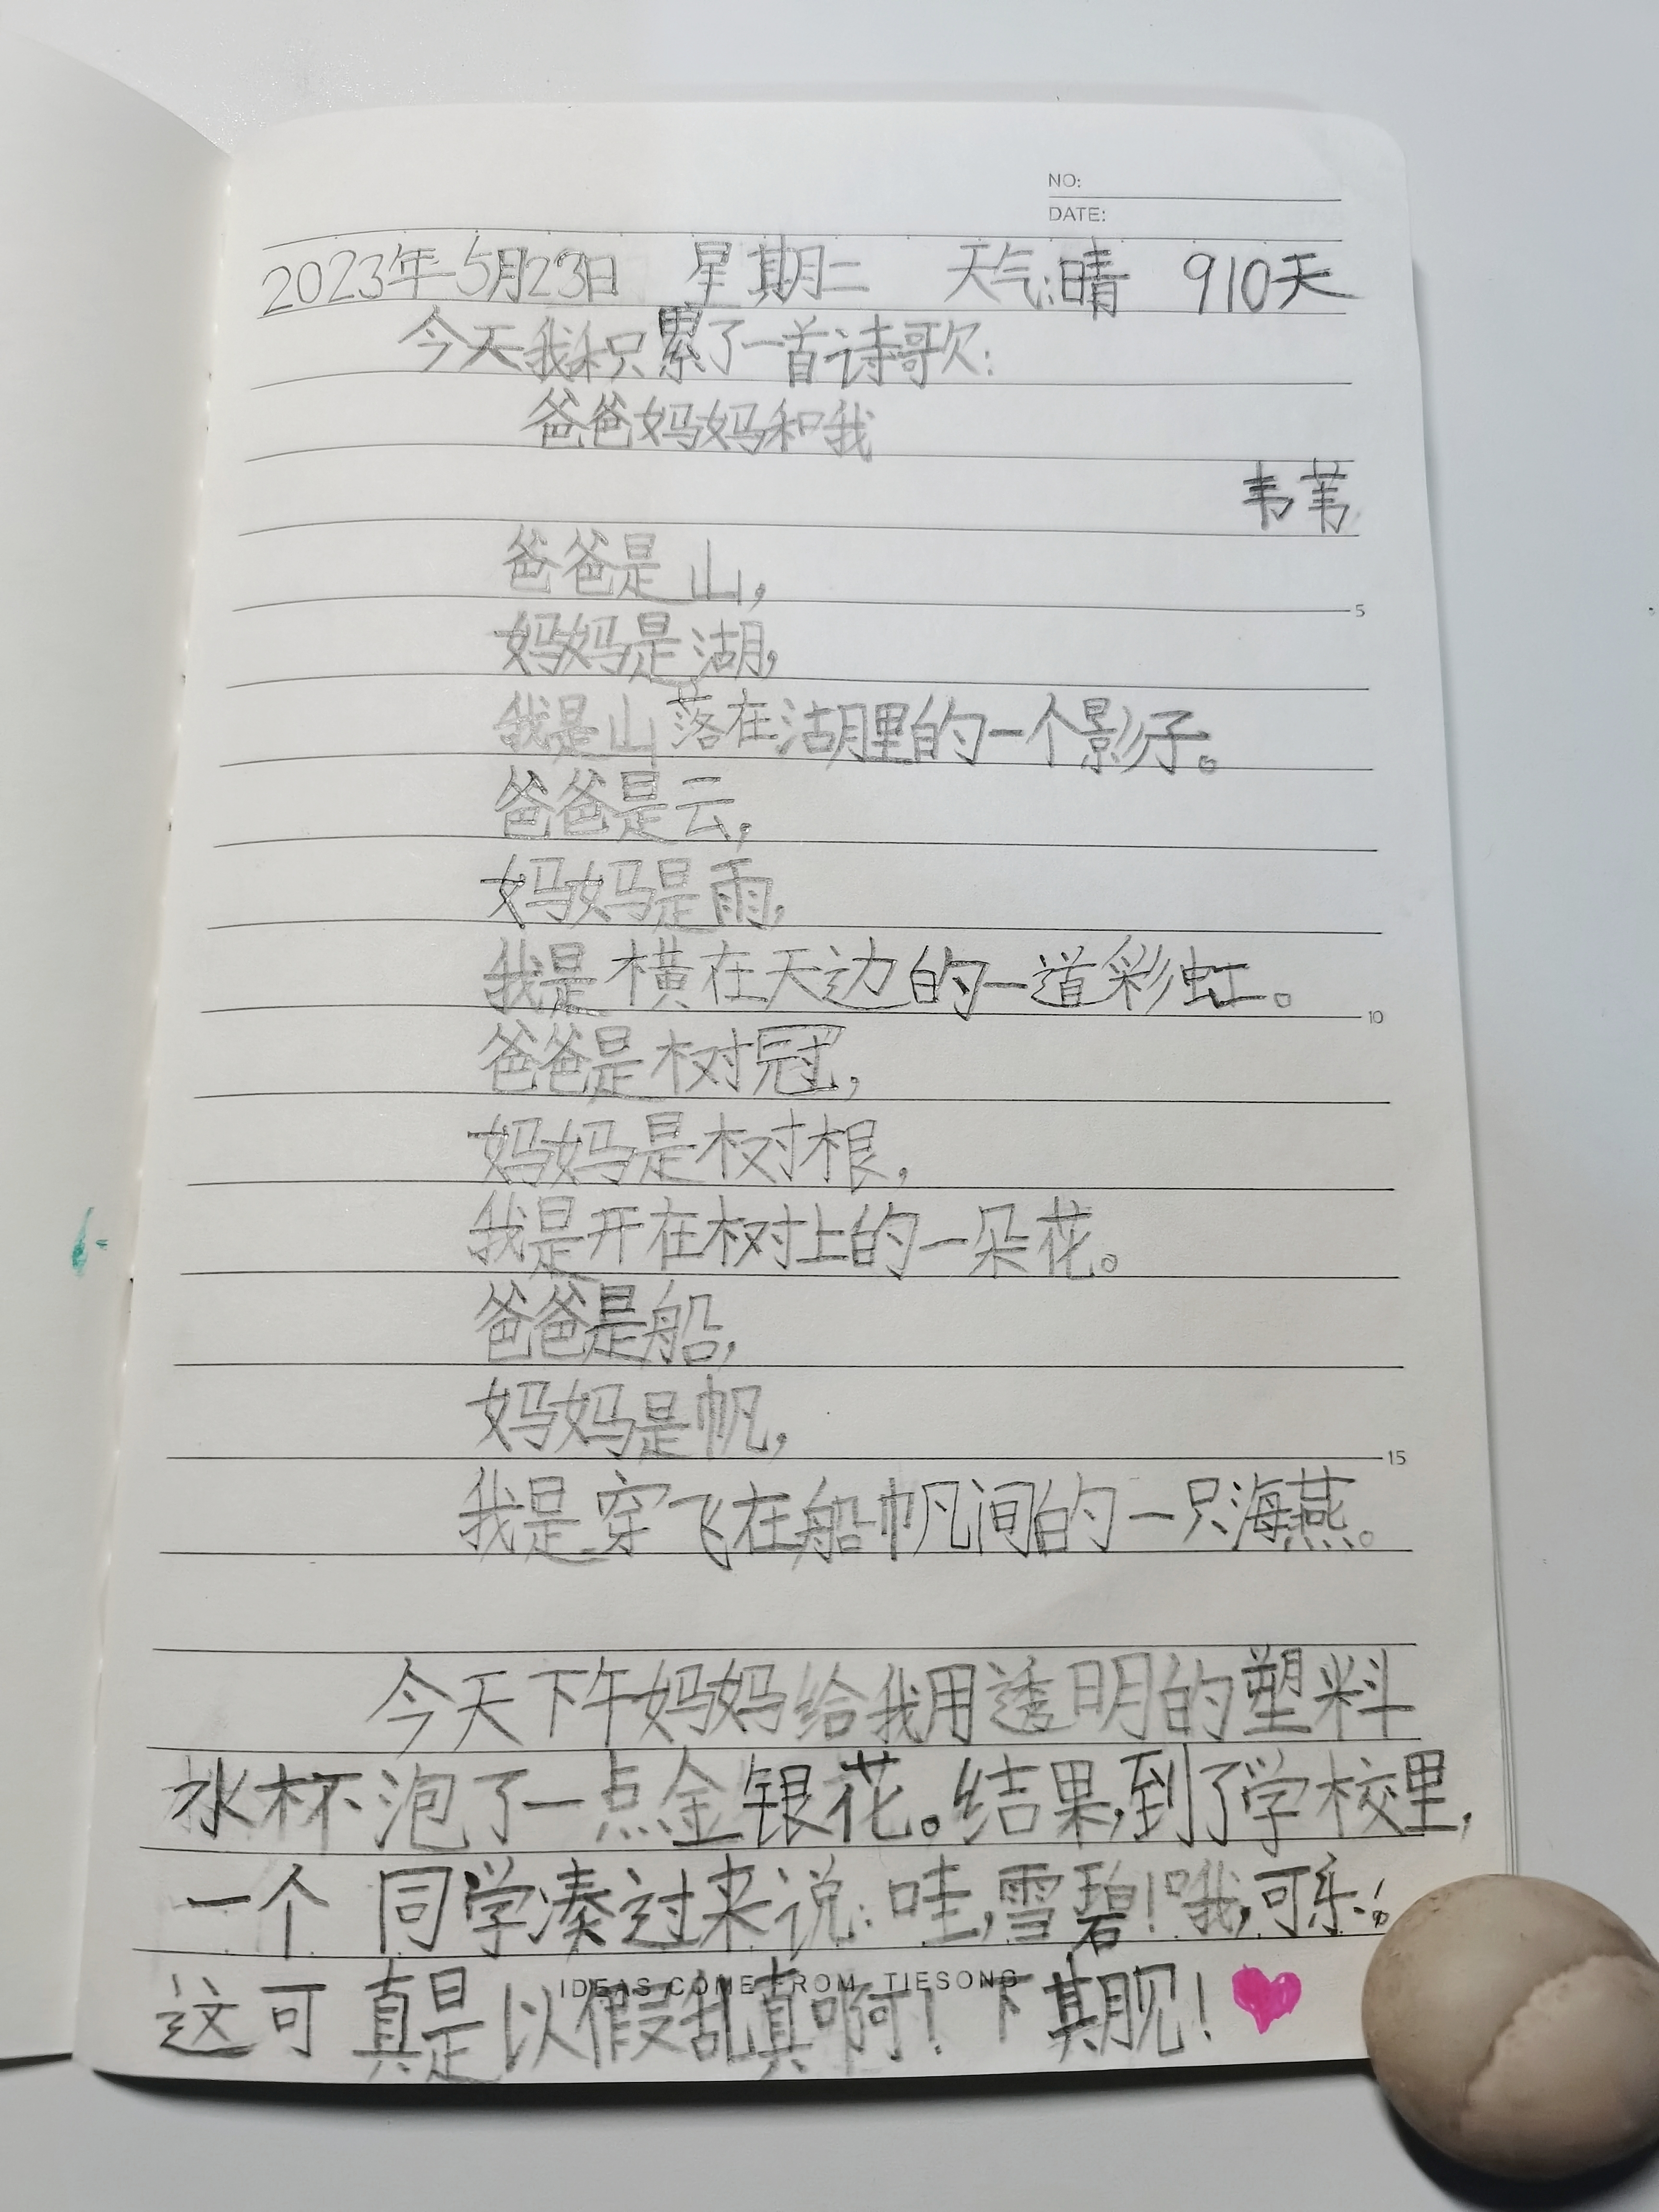 NO:
DATE:
2023年5月23日 星期二 天气:晴 910天
今天我积累了一首诗歌:
爸爸妈妈和我
韦苇
爸爸是山,
妈妈是湖,
5
我是山落在湖里的一个影子。
爸爸是云,
妈妈是雨,
我是横在天边的一道彩虹。
10
爸爸是树冠,
妈妈是树根,
我是开在树上的一朵花。
爸爸是船,
妈妈是帆,
15
我是穿飞在船帆间的一只海燕。
今天下午妈妈给我用透明的塑料
水杯泡了一点金银花。结果,到了学校里,
一个同学凑过来说:哇,雪碧!哦,可乐!。
这可真是以假乱真啊!下期见!
IDEAS COME FROM TIESONG